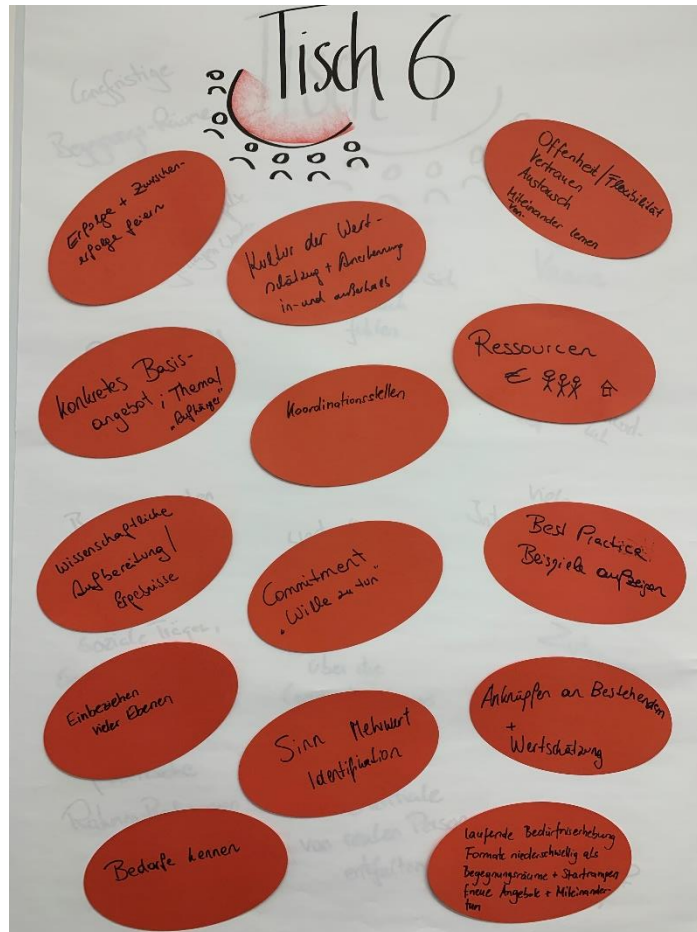 Tisch 6
Erfolge + Zwischen-
erfolge feiern
Kultur der Wert-
schätzung + Anerkennung
in- und außerhalb
Offenheit/Flexibilität
Vertrauen
Austausch
Miteinander lernen
Von-
Konkretes Basis-
angebot; Thema/
„Aufhänger"
Koordinationsstellen
Ressourcen
€
Wissenschaftliche
Aufbereitung/
Ergebnisse
Commitment
„Wille zu tun"
Best Practice
Beispiele aufzeigen
Einbeziehen
vieler Ebenen
Sinn Mehrwert
Identifikation
Anknüpfen an Bestehendem
+
Wertschätzung
Bedarfe kennen
laufende Bedürfniserhebung
Formate niederschwellig als
Begegnungsräume + Startrampen
f. neue Angebote + Miteinander-
tun